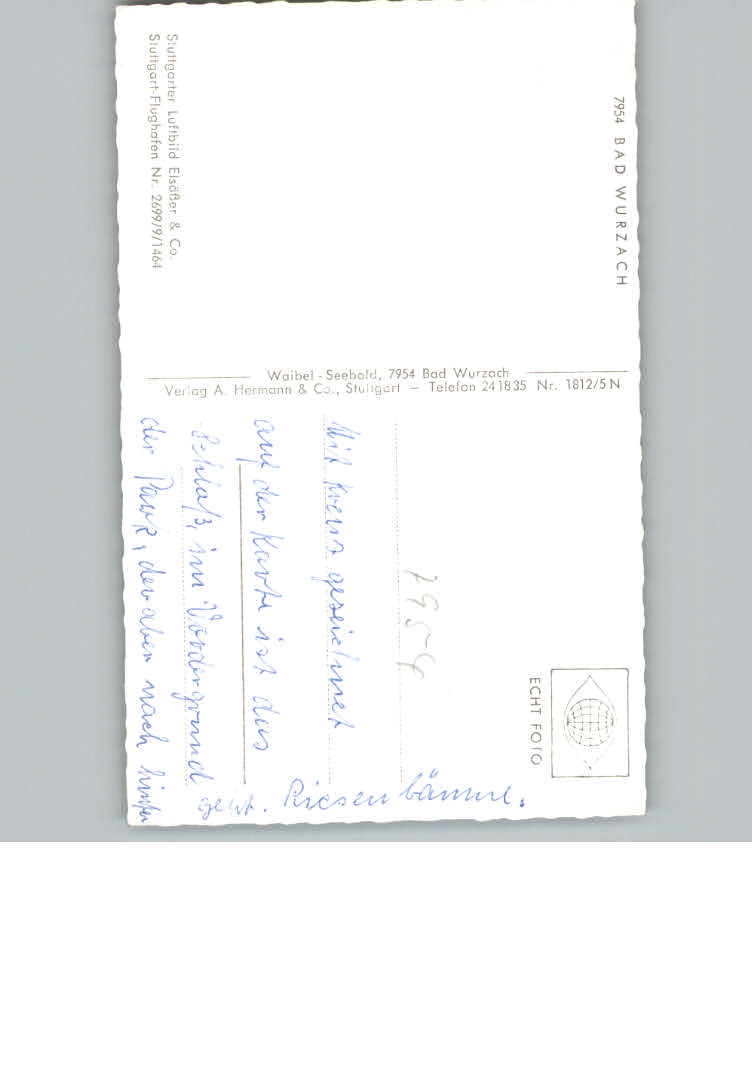 7954 BAD WURZACH
Stuttgarter Luftbild Elsäßer & Co.
Stuttgart-Flughafen Nr. 2699/9/1464
Waibel - Seebold, 7954 Bad Wurzach
Verlag A. Hermann & Co., Stuttgart — Telefon 241835 Nr. 1812/5 N
ECHT FOTO
7954
Mit Kreuz gezeichnet
auf der Karte ist das
Schloß, im Vordergrund
der Park, der aber nach hinten
geht. Riesenbäume.